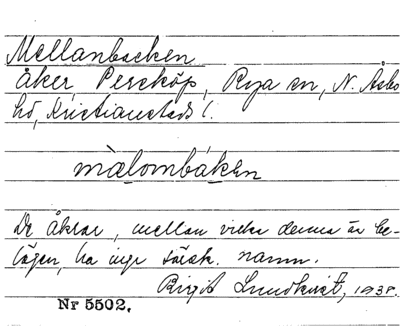 Mellanbacken
Åker, Perstorp, Rya sn, N. Åsbo
hd, Kristianstads l.
màlombáken
De åkrar, mellan vilka denna är be-
lägen, ha inga särsk. namn.
Birgit Lundkvist, 1938.
Nr 5502.